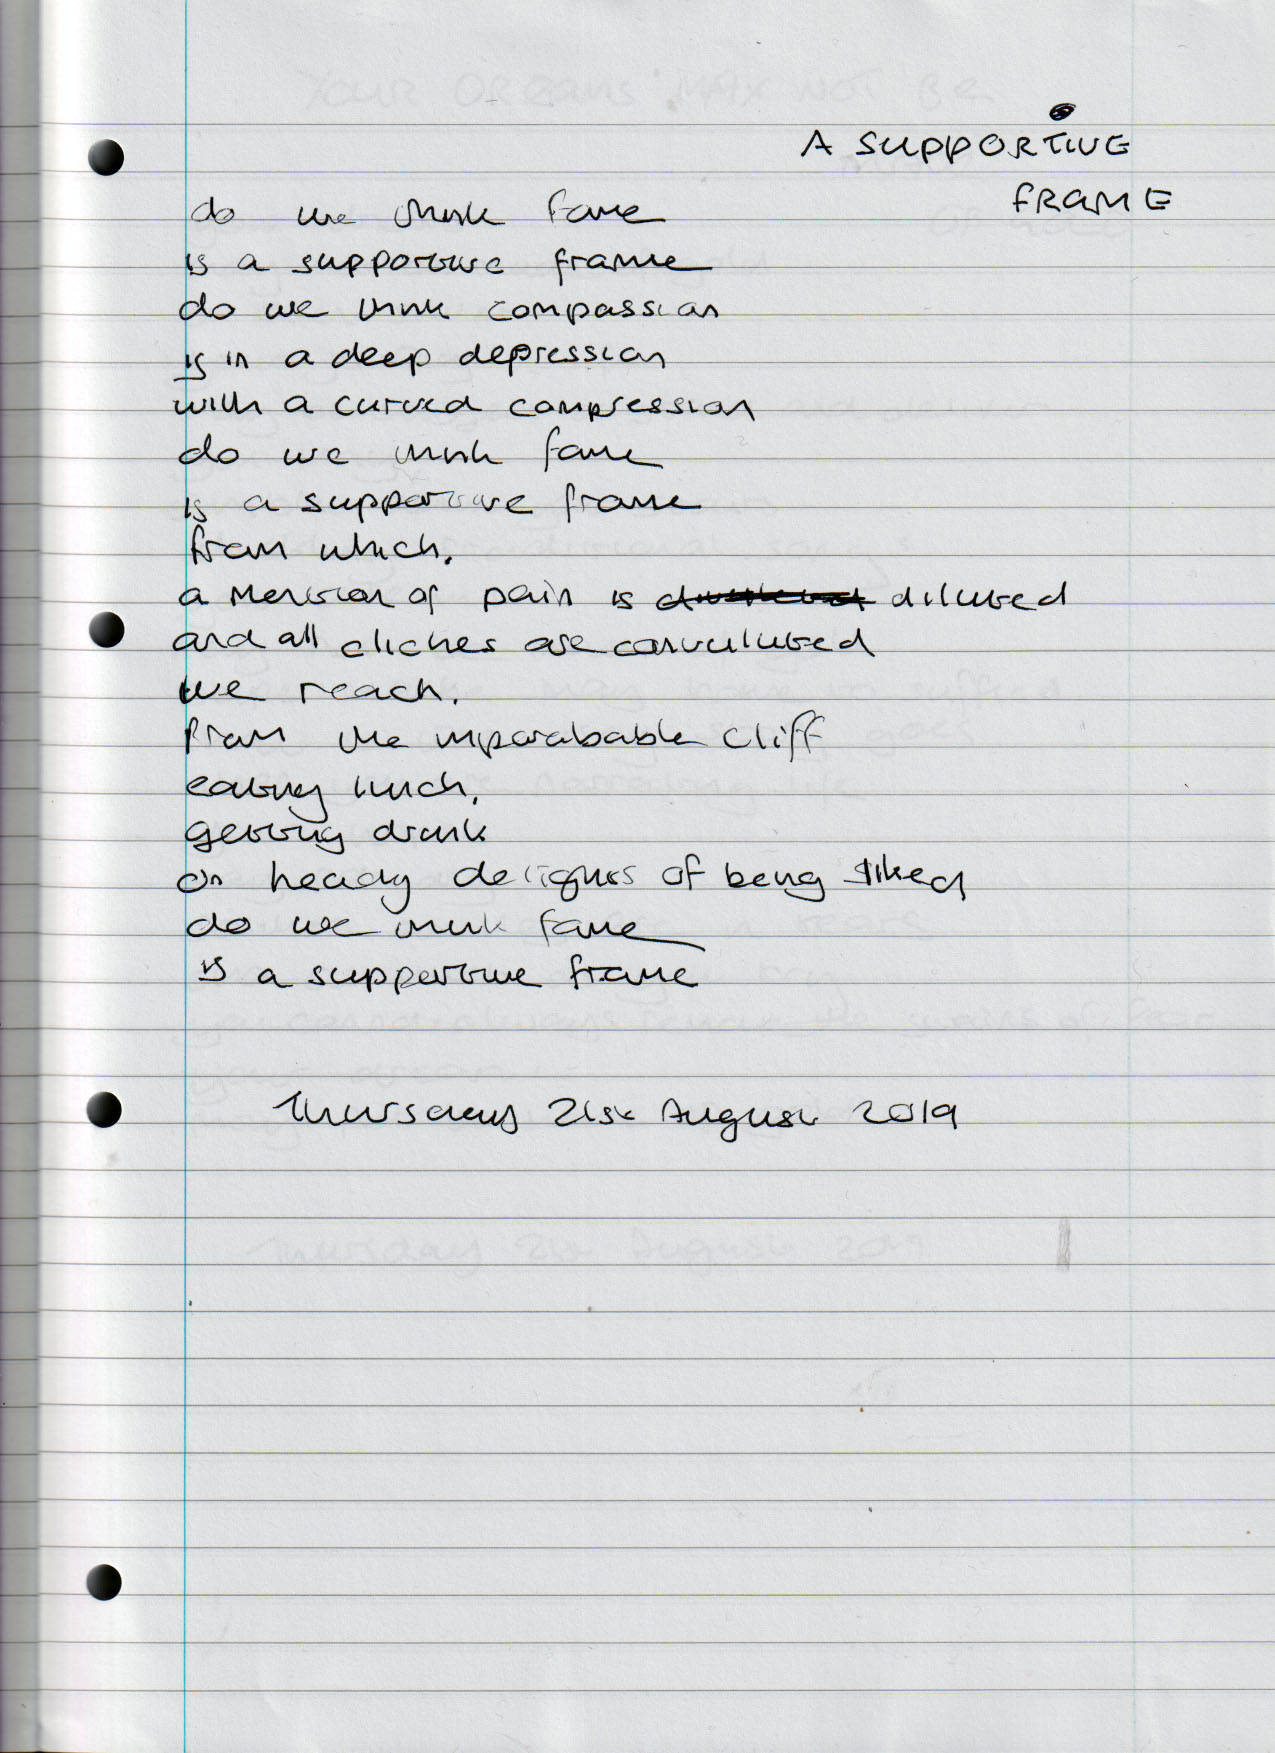 A SUPPORTIVE
FRAME
do we think fame
is a supportive frame
do we think compassion
is in a deep depression
with a curved compression
do we think fame
is a supportive frame
from which,
a mention of pain is diluted
and all cliches are convuluted
we reach.
from the improbabable cliff
eating lunch,
getting drunk
on heady delights of being liked
do we think fame
is a supportive frame
Thursday 21st August 2019